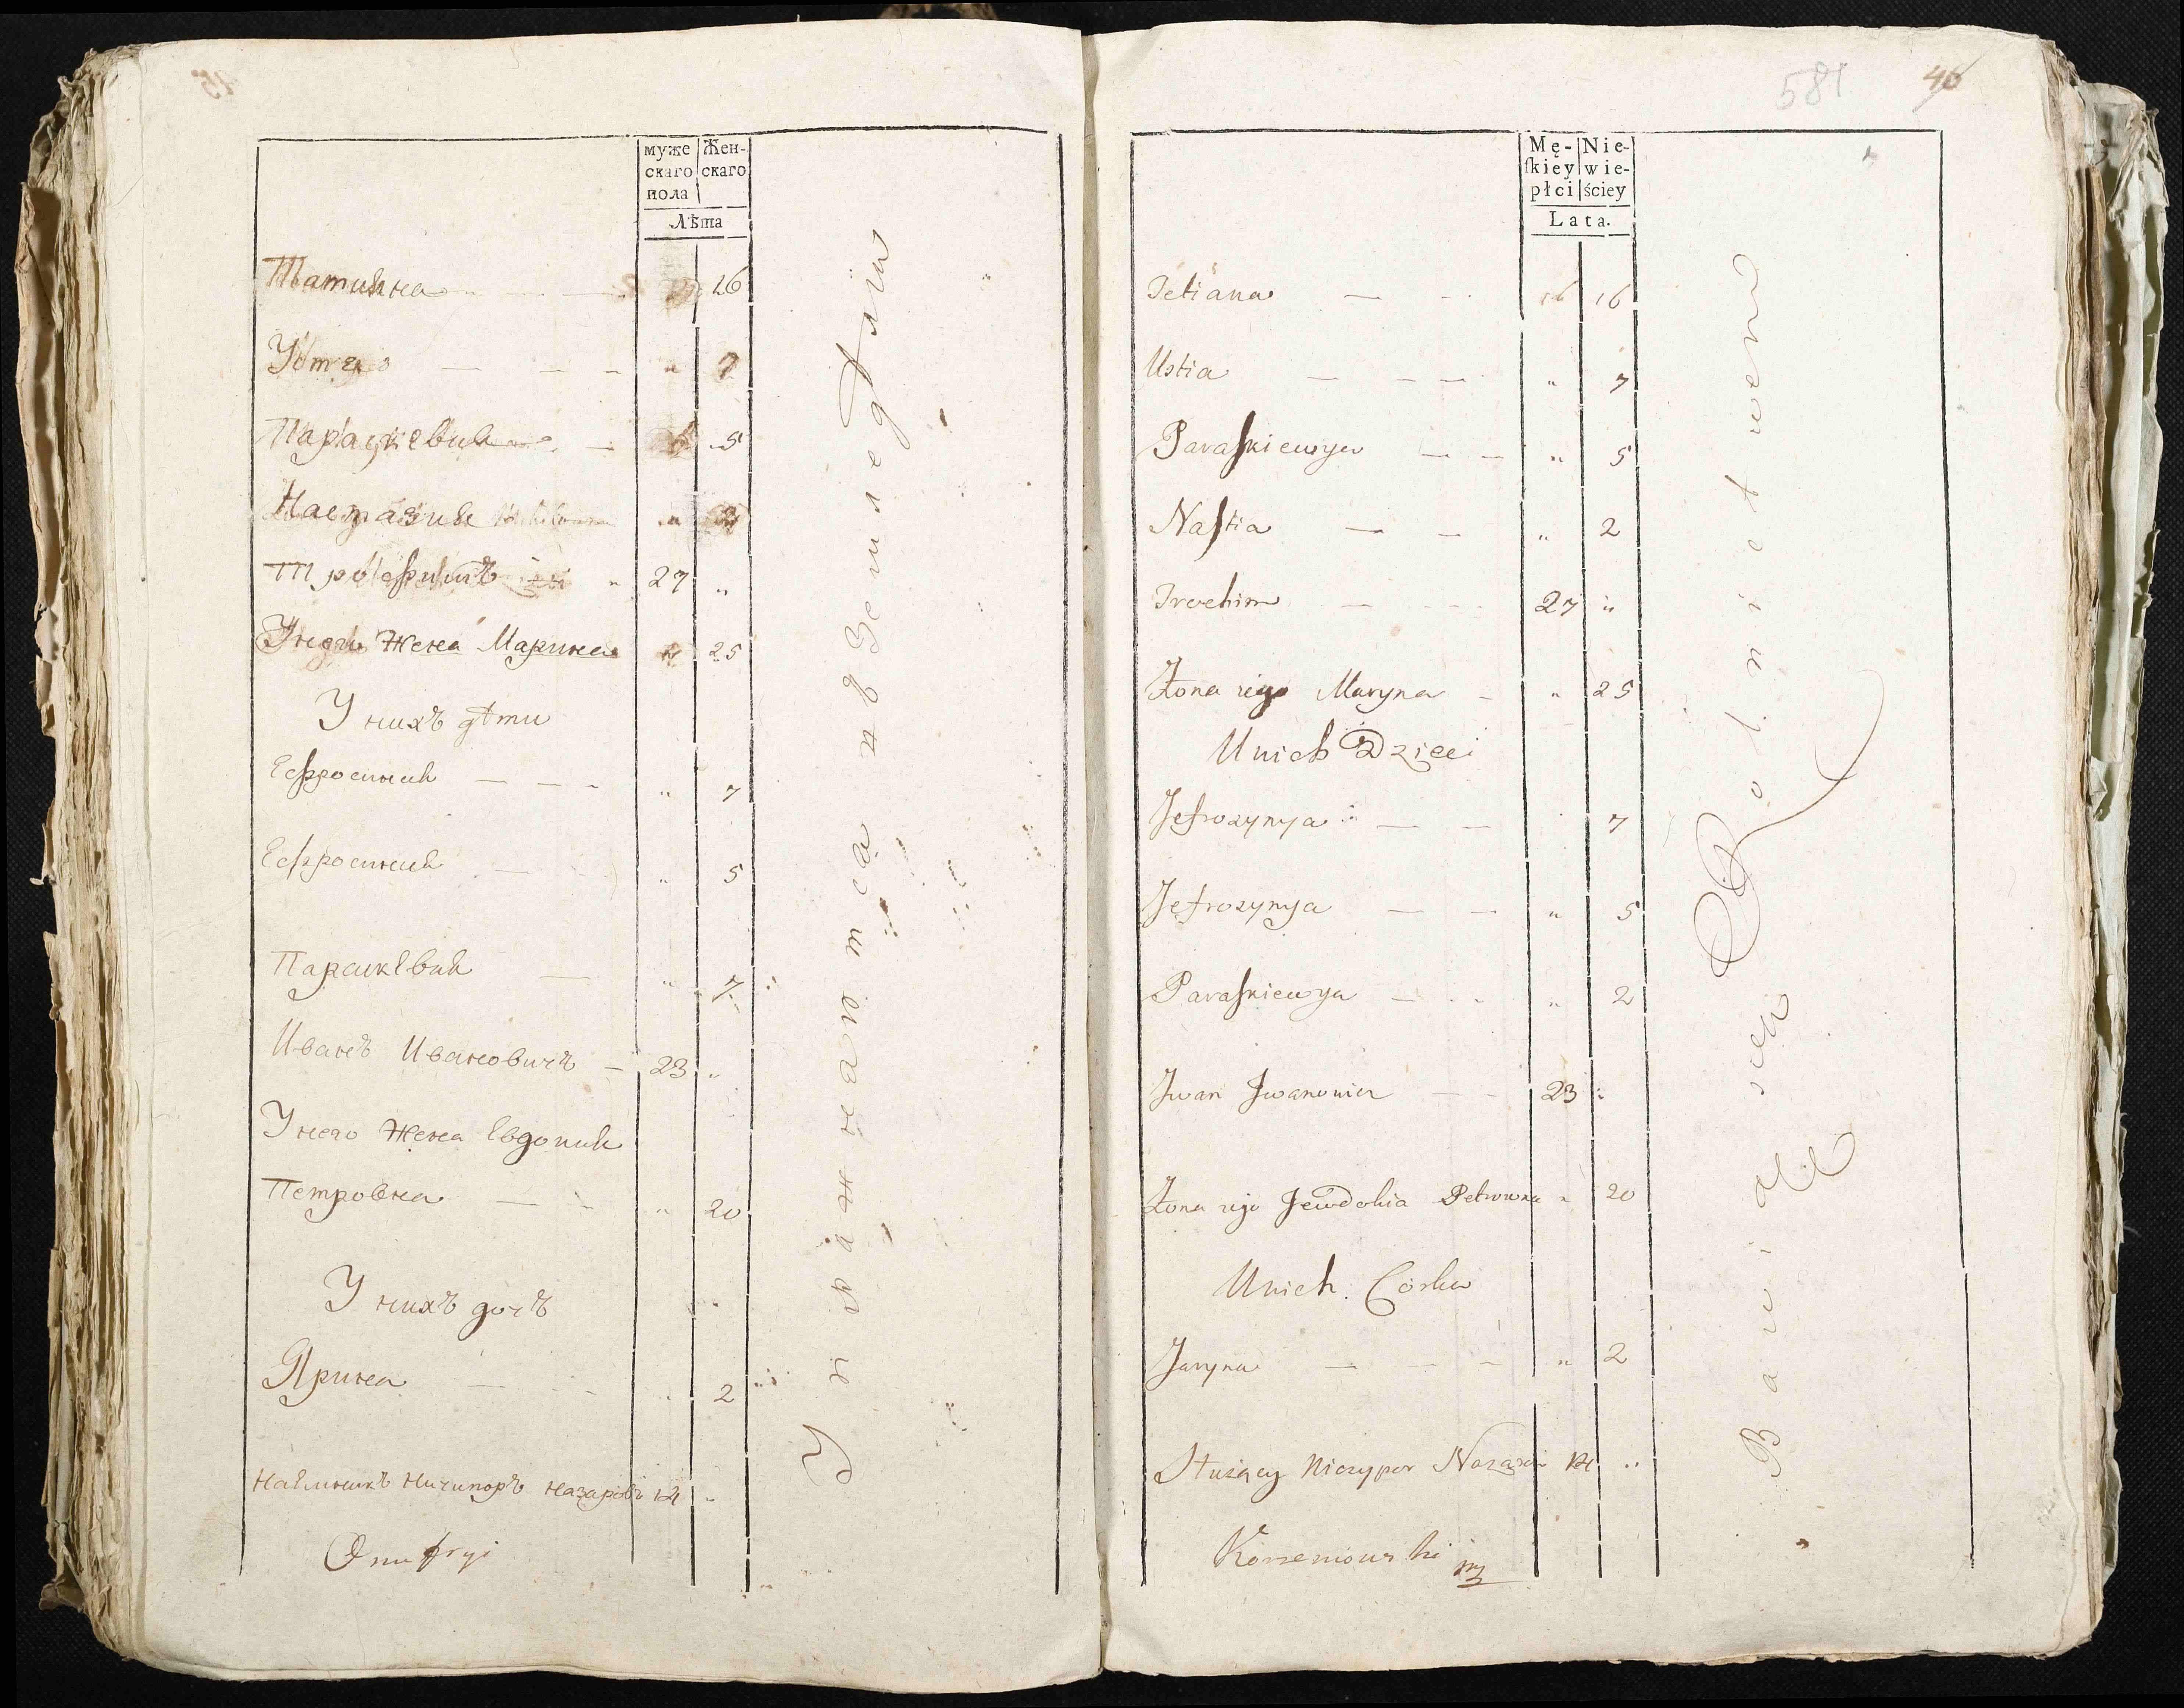 муже
скаго
пола
Жен-
скаго
Лѣта
Татияна 16
Устя " 7
Параскевия 5
Настазия " 2
Трофимъ 27 "
Унего жена Марина 25
У нихъ дѣти
Ефросиния " 7
Ефросиния " 5
Параскевия " 2
Иванъ Ивановичъ 23 "
Унего жена Евдокия
Петровна " 20
У нихъ дочъ
Ярина 2
Наемникъ Ничипоръ Назаровъ 12 "
Onufryi
Упражнаютса въ Земледѣлии
581
46
Mę-
ſkiey
płci
Nie-
wie-
ściey
Lata.
Tetiana 16
Ustia " 7
Paraſkiewya " 5
Naſtia " 2
Trochim 27 "
Żona iego Maryna " 25
Unich Dzieci
Jefrozynya 7
Jefrozynya " 5
Paraſkiewya " 2
Jwan Jwanowicz 23 "
Żona iego Jewdokia Petrowna " 20
Unich Córka
Jaryna " 2
Służący Niczypor 12 "
Korzeniowski
Bawią się Rolnictwem